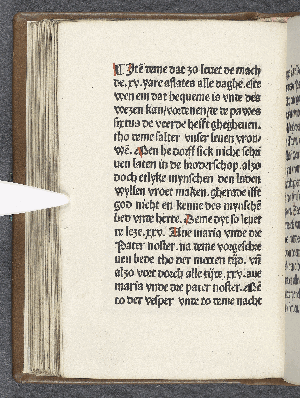 ¶ Itē teme dat zo leuet de mach
te .xv. yare aflates alle daghe. este
wen em dat bequeme is vnde des
wezen kan/vordenen/de de pawes
sixtus de veerde hefft ghegheuen.
tho deme salter vnser leuen vrou-
wē. Men he dorff sick nicht schri
uen laten in de broderschop. alzo
doch etlyke mynschen den luden
wyllen vroet maken. gherade ifft
god nicht en kenne des mynschē
lied vnde herte. Deme dyt so leuet
te leze .xxv. Aue maria vnde die
Pater noster. na deme vorgeschre
uen bede tho der metten tijd. vñ
alzo vort dorch alle tijde .xxv. aue
maria vnde die pater noster. Mē
to der vesper vnde to deme nacht